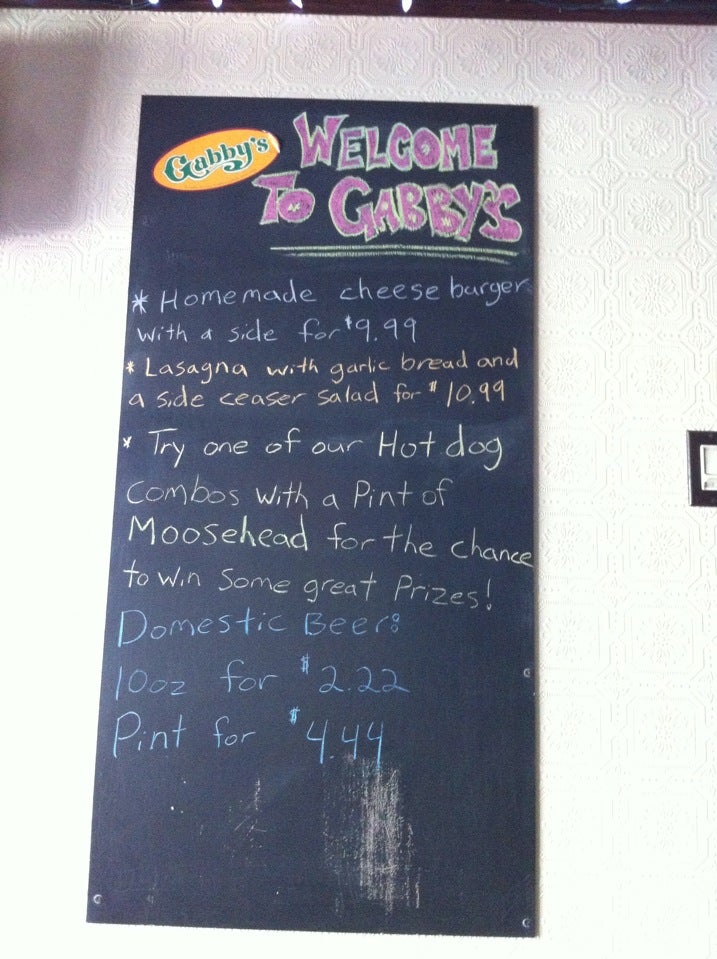 Gabby's
WELCOME
TO GABBY'S
* Homemade cheese burger
with a side for $9.99
* Lasagna with garlic bread and
a side ceaser salad for $10.99
* Try one of our Hot dog
Combos with a Pint of
Moosehead for the chance
to win Some great Prizes!
Domestic Beer:
10oz for $2.22
Pint for $4.44